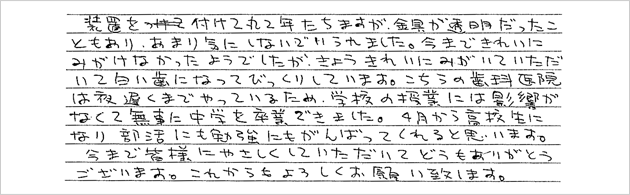 装置を付けて2年たちますが、金具が透明だったこ
ともあり、あまり気にしないでいられました。今まできれいに
みがけなかったようでしたが、きょうきれいにみがいていただ
いて白い歯になってびっくりしています。こちらの歯科医院
は夜遅くまでやっているため、学校の授業には影響が
なくて無事に中学を卒業できました。4月から高校生に
なり部活にも勉強にもがんばってくれると思います。
今まで皆様にやさしくしていただいてどうもありがとう
ございます。これからもよろしくお願い致します。